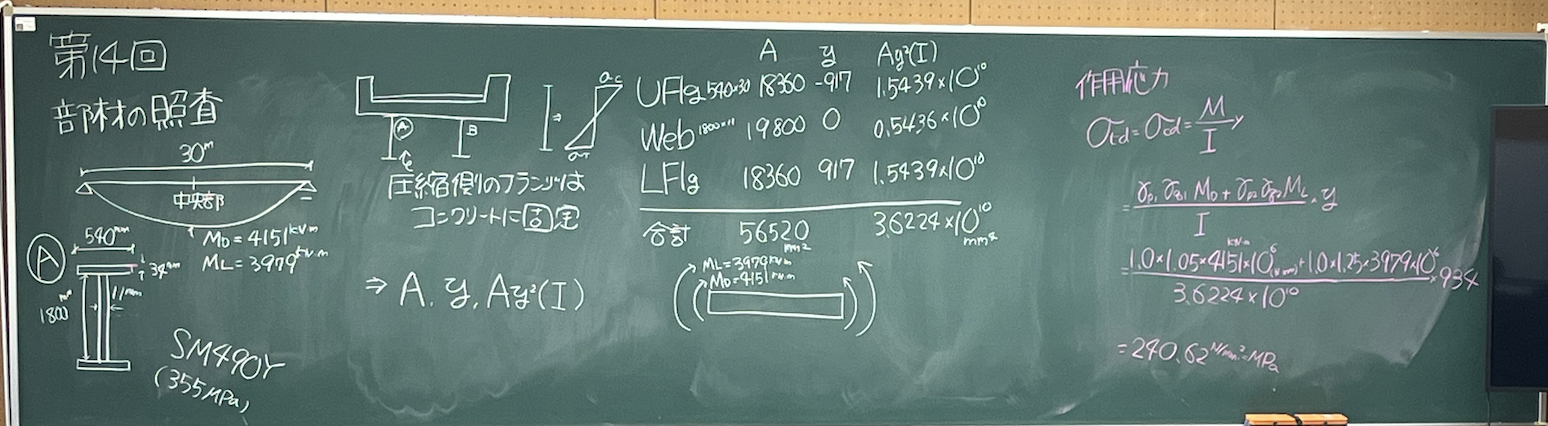 第14回
部材の照査
30m
中央部
MD = 4151kN・m
ML = 3979kN・m
A
540mm
34mm
1800mm
11mm
SM490Y
(355MPa)
A
B
⇒
σc
σT
圧縮側のフランジは
コンクリートに固定
⇒ A, y, Ay²(I)
A y Ay²(I)
UFlg 540×30 18360 -917 1.5439×10¹⁰
Web 1800×11 19800 0 0.5436×10¹⁰
LFlg 18360 917 1.5439×10¹⁰
合計 56520mm² 3.6224×10¹⁰mm⁴
ML=3979kN・m
MD=4151kN・m
作用応力
σtd=σcd=M/I y
=γp1 γq1 MD + γp2 γq2 ML/I・y
=1.0×1.05×4151×10⁶(N・mm)+1.0×1.25×3979×10⁶/3.6224×10¹⁰×934
kN・m
=240.62N/mm²=MPa